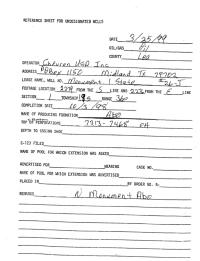 REFERENCE SHEET FOR UNDESIGNATED WELLS
DATE 3/25/99
OIL/GAS Oil
COUNTY Lea
OPERATOR Chevron USA Inc
ADDRESS POBox 1150 Midland Tx 79702
LEASE NAME, WELL NO. Monument 1 State
FOOTAGE LOCATION FROM THE S LINE AND FROM THE E LINE
SECTION 1 TOWNSHIP 19S RANGE 36E
COMPLETION DATE 10/3/98
NAME OF PRODUCING FORMATION Abo
TOP OF PERFORATIONS 7213-7468 OH
DEPTH TO CASING SHOE
C-123 FILED
NAME OF POOL FOR WHICH EXTENSION WAS ASKED
ADVERTISED FOR HEARING CASE NO.
NAME OF POOL FOR WHICH EXTENSION WAS ADVERTISED
PLACED IN BY ORDER NO. R-
REMARKS N Monument Abo